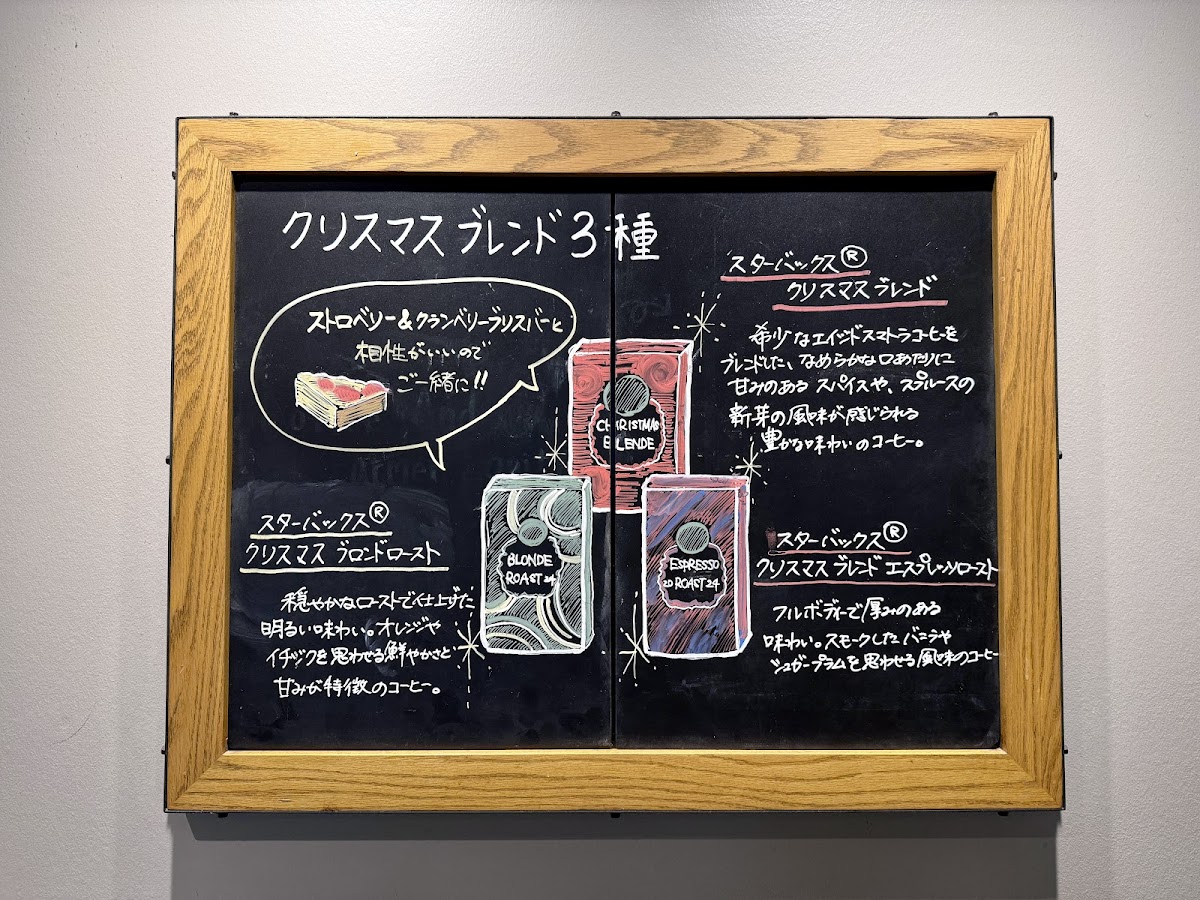 クリスマスブレンド3種
ストロベリー&クランベリーブリスバーと
相性がいいので
ご一緒に!!
スターバックス®
クリスマスブレンド
希少なエイジッドスマトラコーヒーを
ブレンドした、なめらかな口あたりに
甘みのあるスパイスや、スプルースの
新芽の風味が感じられる
豊かな味わいのコーヒー。
CHRISTMAS
BLENDE
スターバックス®
クリスマス ブロンドロースト
穏やかなローストで仕上げた
明るい味わい。オレンジや
イチヂクを思わせる鮮やかさと
甘みが特徴のコーヒー。
BLONDE
ROAST 24
ESPRESSO
20 ROAST 24
スターバックス®
クリスマス ブレンド エスプレッソロースト
フルボディーで厚みのある
味わい。スモークしたバニラや
シュガープラムを思わせる風味のコーヒー